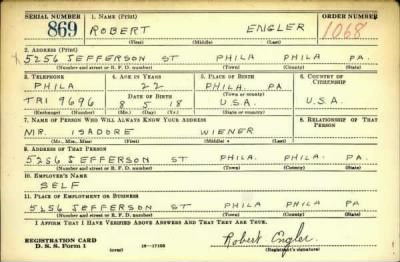 SERIAL NUMBER 1. NAME (Print) ORDER NUMBER
869 ROBERT ENGLER 1068
(First) (Middle) (Last)
2. ADDRESS (Print)
5256 JEFFERSON ST PHILA PHILA PA.
(Number and street or R. F. D. number) (Town) (County) (State)
3. TELEPHONE 4. AGE IN YEARS 5. PLACE OF BIRTH 6. COUNTRY OF CITIZENSHIP
PHILA 22 PHILA. PA
DATE OF BIRTH (Town or county)
TRI 9696 8 5 18 U.S.A. U.S.A.
(Exchange) (Number) (Mo.) (Day) (Yr.) (State or country)
7. NAME OF PERSON WHO WILL ALWAYS KNOW YOUR ADDRESS 8. RELATIONSHIP OF THAT PERSON
MR. ISADORE WIENER
(Mr., Mrs., Miss) (First) (Middle) (Last)
9. ADDRESS OF THAT PERSON
5256 JEFFERSON ST PHILA. PHILA. PA
(Number and street or R. F. D. number) (Town) (County) (State)
10. EMPLOYER'S NAME
SELF
11. PLACE OF EMPLOYMENT OR BUSINESS
5256 JEFFERSON ST PHILA PHILA PA.
(Number and street or R. F. D. number) (Town) (County) (State)
I AFFIRM THAT I HAVE VERIFIED ABOVE ANSWERS AND THAT THEY ARE TRUE.
REGISTRATION CARD
D. S. S. Form 1 (over) Robert Engler
(Registrant's signature)